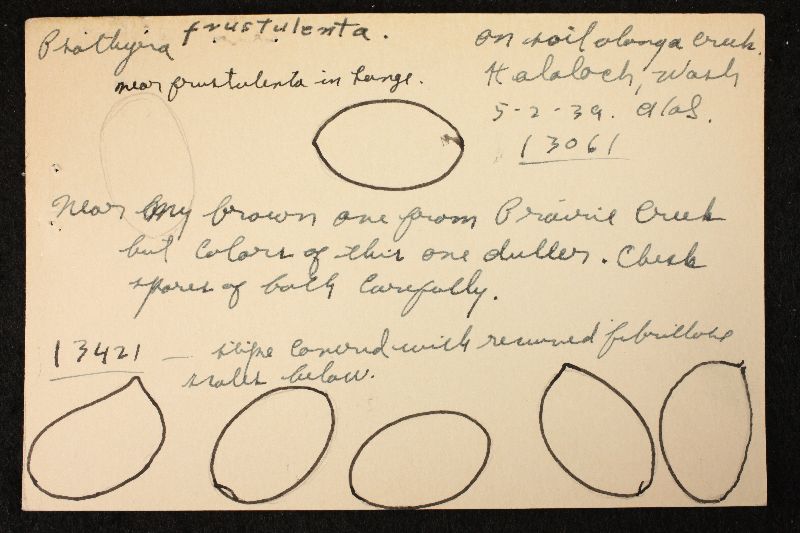 Psathyra frustulenta.
near frustulenta in Lange.
on soil along a creek.
Kalaloch, Wash
5-2-39. AHS.
13061
Near my brown one from Prairie Creek
but colors of this one duller. Check
spores of both carefully.
13421 — stipe covered with recurved fibrillose
scales below.